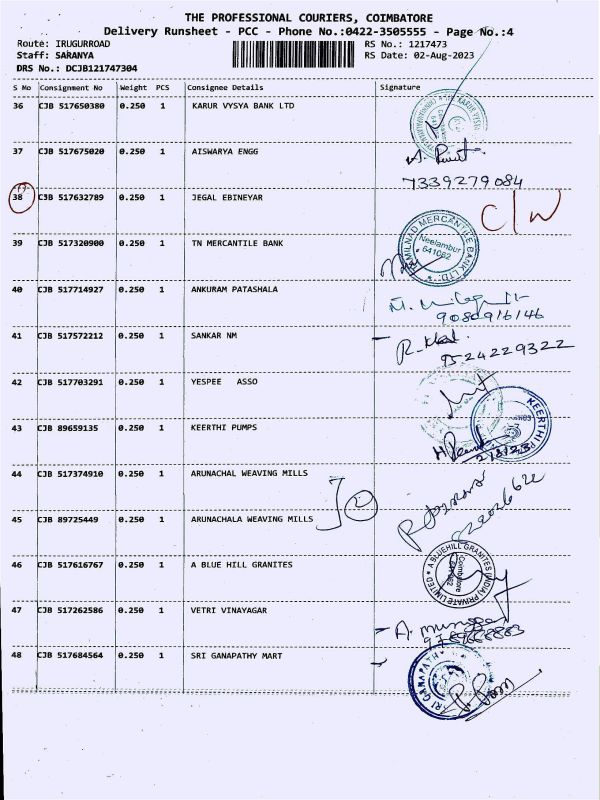 THE PROFESSIONAL COURIERS, COIMBATORE
Delivery Runsheet - PCC - Phone No.:0422-3505555 - Page No.:4
Route: IRUGURROAD RS No.: 1217473
Staff: SARANYA RS Date: 02-Aug-2023
DRS No.: DCJB121747304
S No Consignment No Weight PCS Consignee Details Signature
36 CJB 517650380 0.250 1 KARUR VYSYA BANK LTD
37 CJB 517675020 0.250 1 AISWARYA ENGG
7339279084
38 CJB 517632789 0.250 1 JEGAL EBINEYAR C/W
39 CJB 517320900 0.250 1 TN MERCANTILE BANK TAMILNAD MERCANTILE BANK LTD. Neelambur 641062
40 CJB 517714927 0.250 1 ANKURAM PATASHALA
9080916146
41 CJB 517572212 0.250 1 SANKAR NM
9524229322
42 CJB 517703291 0.250 1 YESPEE ASSO
43 CJB 89659135 0.250 1 KEERTHI PUMPS KEERTHI
2/8/23
44 CJB 517374910 0.250 1 ARUNACHAL WEAVING MILLS
45 CJB 89725449 0.250 1 ARUNACHALA WEAVING MILLS 2
46 CJB 517616767 0.250 1 A BLUE HILL GRANITES A BLUEHILL GRANITES (INDIA) PRIVATE LIMITED Coimbatore
47 CJB 517262586 0.250 1 VETRI VINAYAGAR
48 CJB 517684564 0.250 1 SRI GANAPATHY MART SRI GANAPATHY